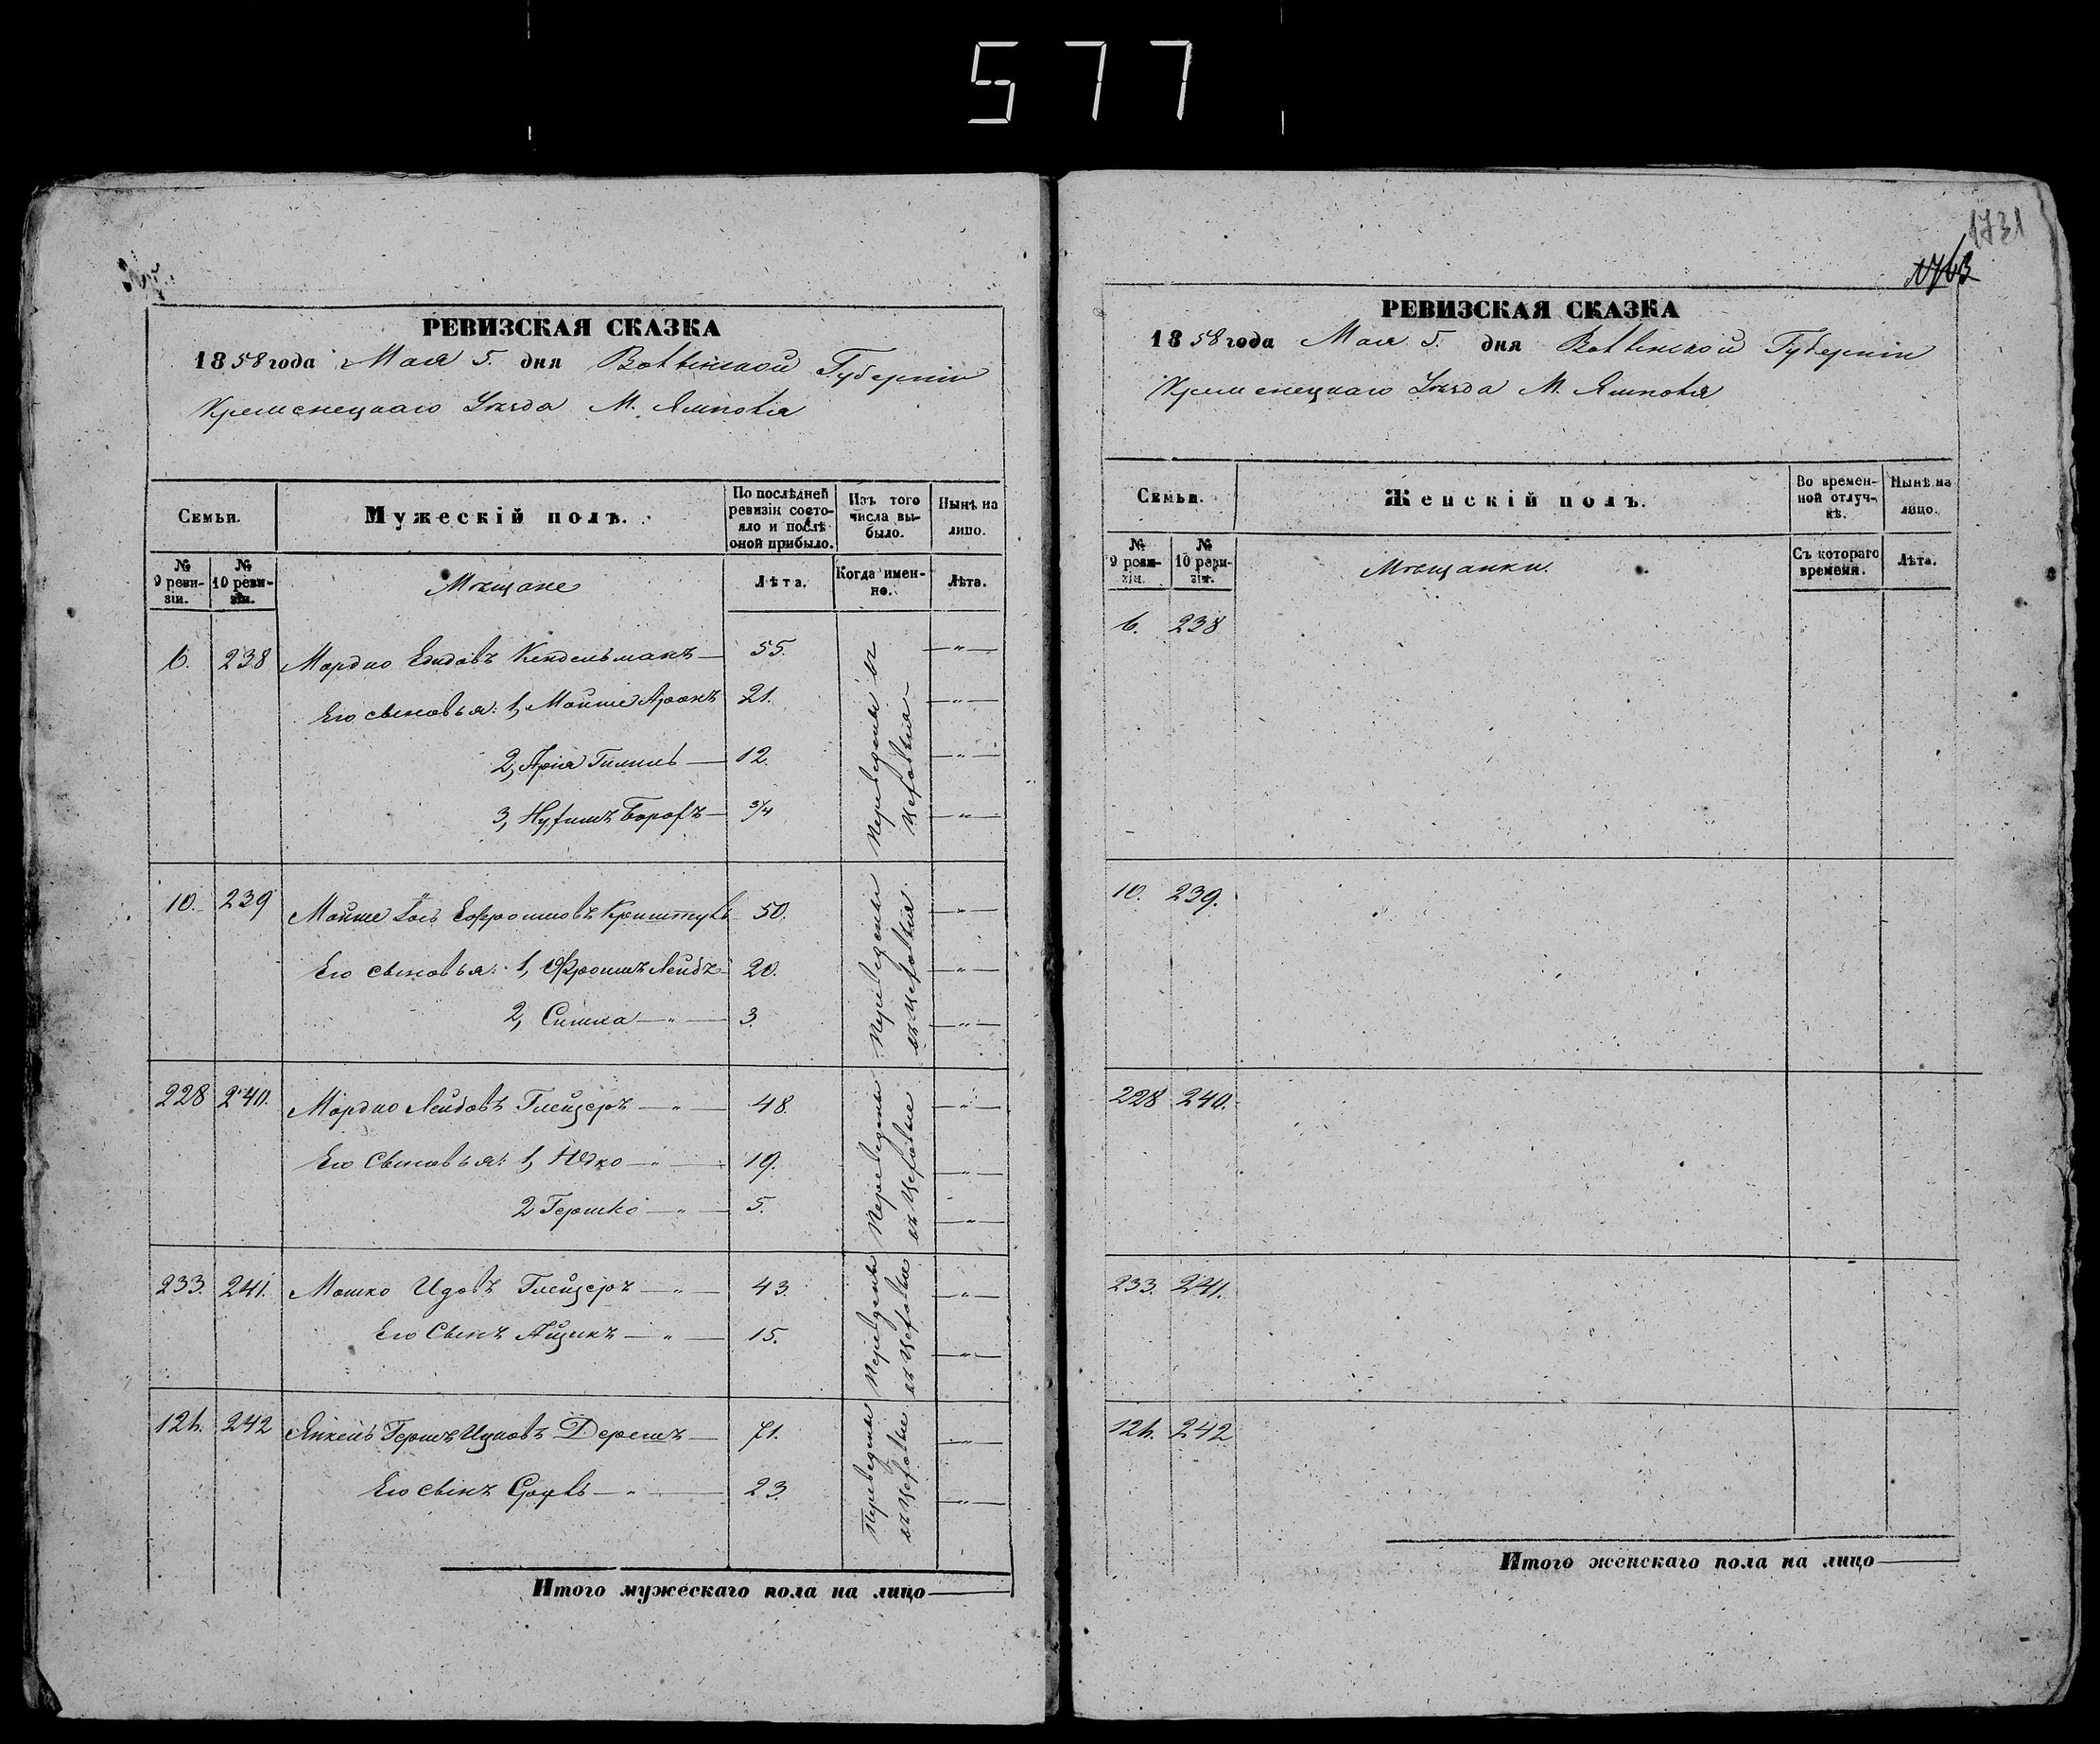 577
1731
1763
РЕВИЗСКАЯ СКАЗКА
1858 года Мая 5. дня Волынской Губерніи
Кременецкаго Уѣзда М. Ямполя
Семьи.
Мужескій полъ.
По послѣдней ревизіи состояло и послѣ оной прибыло.
Изъ того числа выбыло.
Нынѣ на лицо.
№ 9 ревизіи.
№ 10 ревизіи.
Мѣщане
Лѣта.
Когда именно.
Лѣта.
6. 238 Мордко Кендельманъ — 55. Переведены въ Цеховыя — „ —
Его сыновья: 1, Мойше Аронъ 21. — „ —
2, Арія — 12. — „ —
3, Борохъ — 3/4 — „ —
10. 239 Мойше Іось 50. Переведены въ Цеховыя. — „ —
Его сыновья: 1, Лейбъ 20. — „ —
2, Симха — „ — 3. — „ —
228 240. Мордко Лейбовъ Глейзеръ — „ — 48. Переведены въ Цеховые — „ —
Его Сыновья: 1, — „ — 19. — „ —
2 Гершко — „ — 5. — „ —
233. 241. Мошко Глейзеръ — „ — 43. Переведены въ Цеховые — „ —
Его Сынъ Айзикъ — „ — 15. — „ —
126. 242 Янкель Гершъ Ицковъ — 71. Переведены въ Цеховые — „ —
Его сынъ — „ — 23. — „ —
Итого мужескаго пола на лицо —
РЕВИЗСКАЯ СКАЗКА
1858 года Мая 5. дня Волынской Губерніи
Кременецкаго Уѣзда М. Ямполя
Семьи.
Женскій полъ.
Во временной отлучкѣ.
Нынѣ на лицо.
№ 9 ревизіи.
№ 10 ревизіи.
Мѣщанки.
Съ котораго времени.
Лѣта.
6. 238
10. 239.
228 240.
233. 241.
126. 242
Итого женскаго пола на лицо —